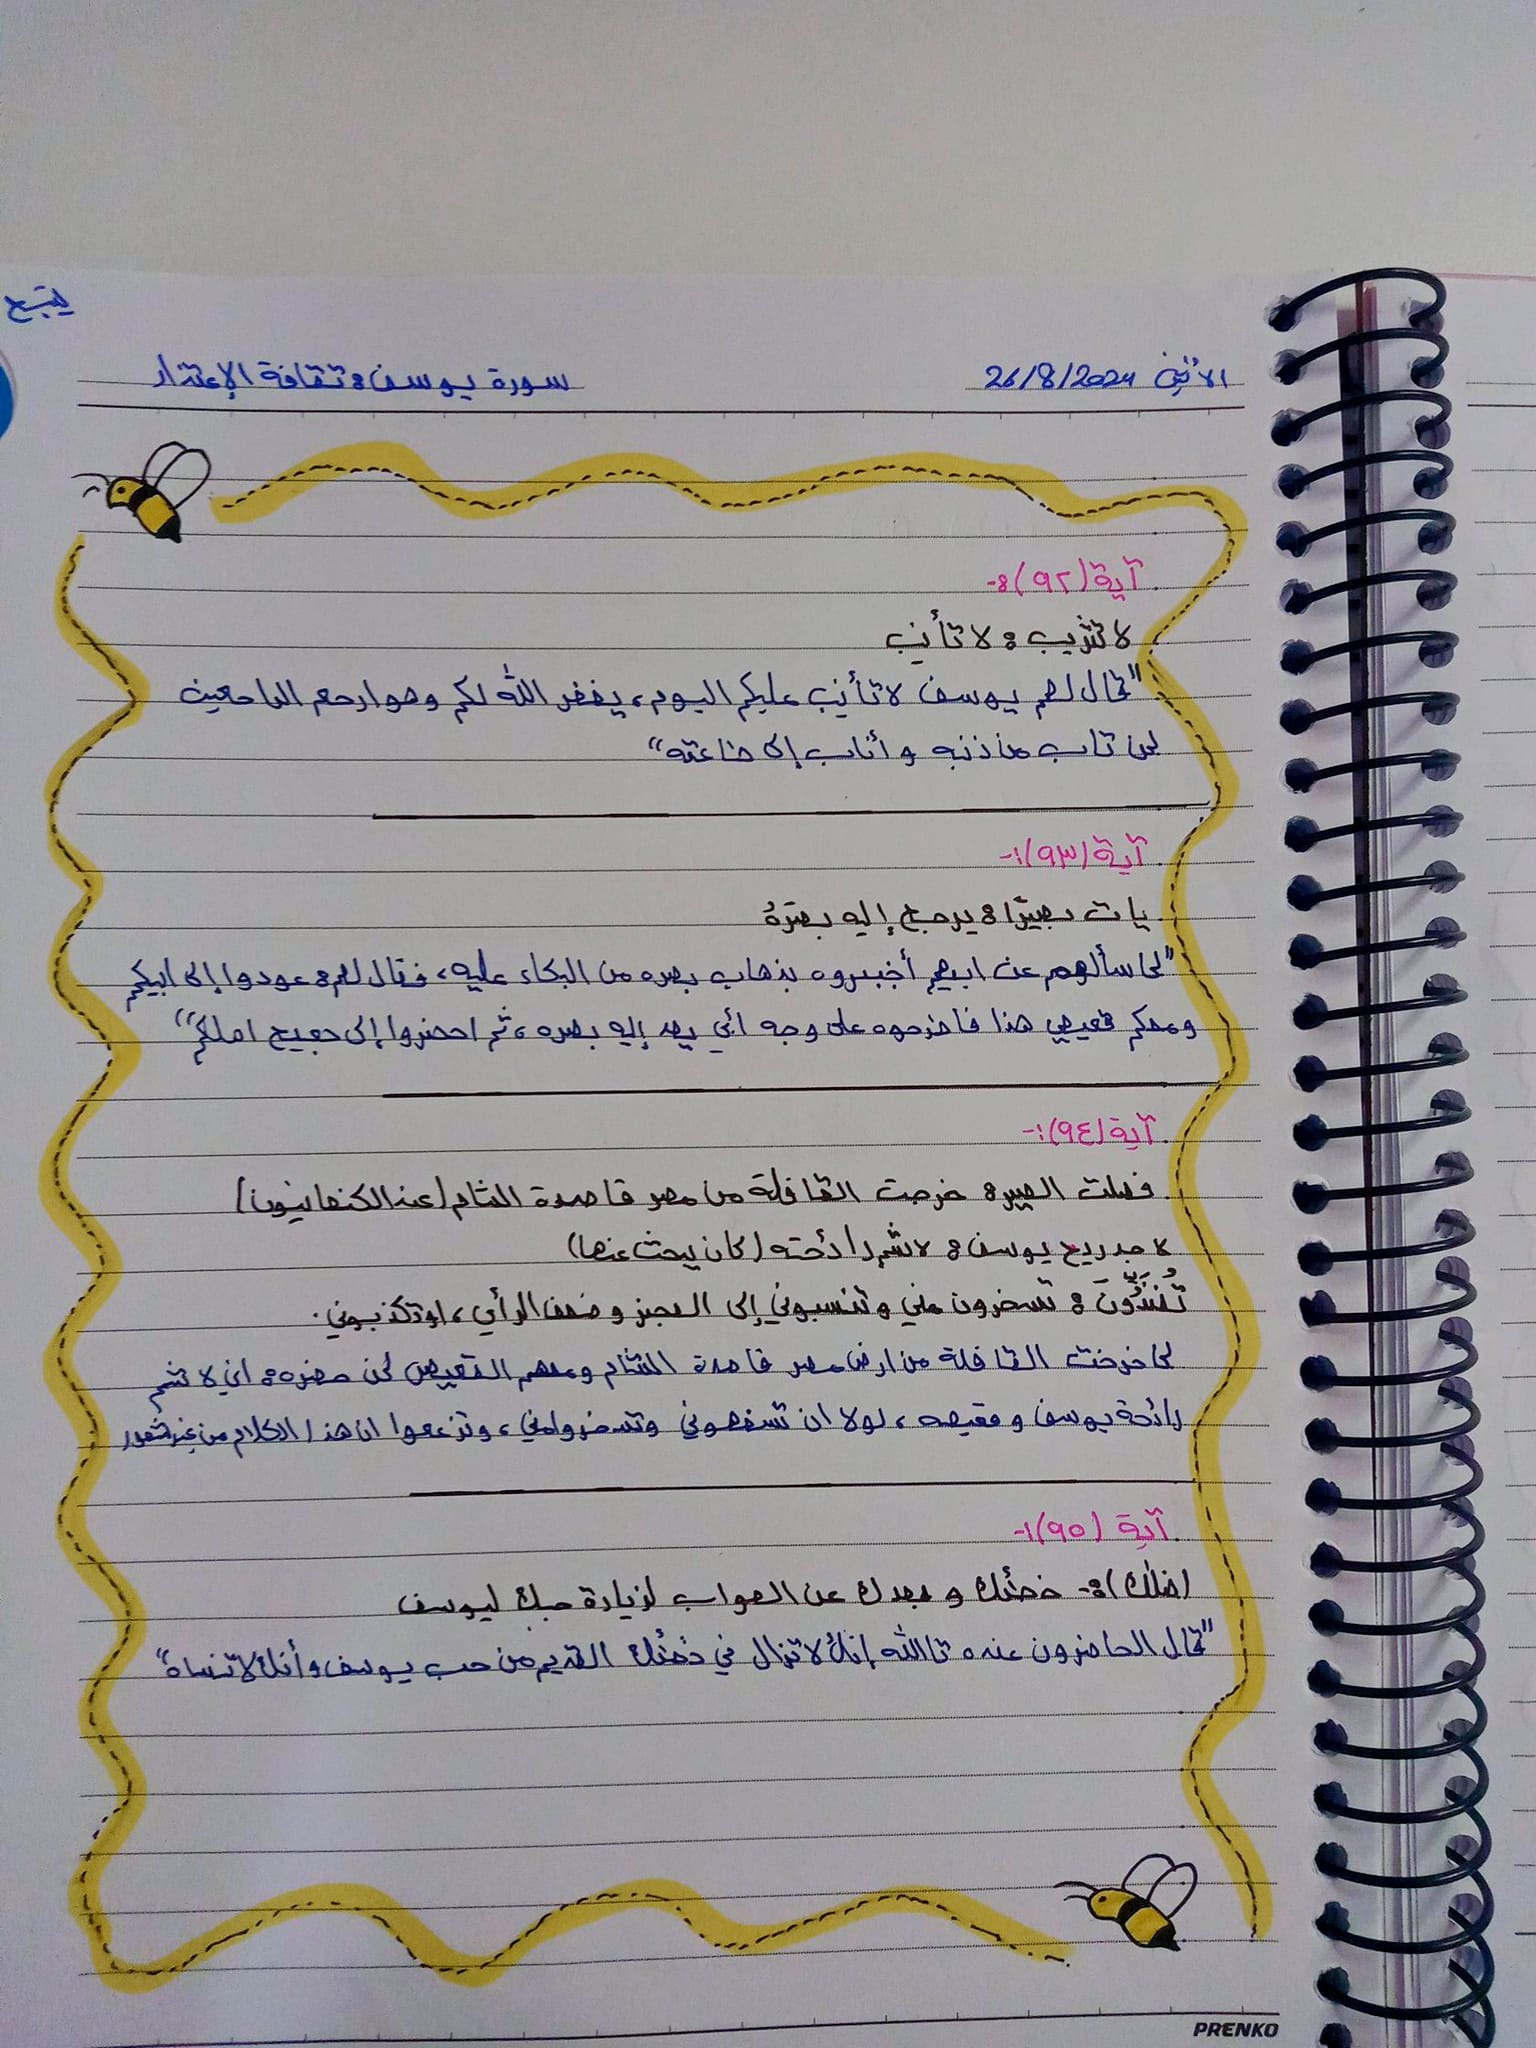 يتبع
الاثنين 26/8/2024
سورة يوسف: ثقافة الإعتذار
آية (٩٢):-
لا تثريب: لا تأنيب
"قال لهم يوسف لا تأنيب عليكم اليوم، يغفر الله لكم وهو ارحم الراحمين
لمن تاب من ذنبه و أناب إلى طاعته"
آية (٩٣):-
يات بصيرًا: يرجع إليه بصرهُ
"لما سألهم عن ابيهم أخبروه بذهاب بصره من البكاء عليه، فقال لهم: عودوا إلى ابيكم
ومعكم قميصي هذا فاطرحوه على وجه أبي يعد إليه بصره، ثم احضروا إلى جميع اهلكم"
آية (٩٤):-
فصلت العير: خرجت القافلة من مصر قاصدة الشام (عند الكنعانيون)
لاجد ريح يوسف: لاشم رائحته (كان يبحث عنها)
تُفَنِّدُونَ: تسخرون مني وتنسبوني إلى العجز وضعف الرأي، او تكذبوني.
لما خرجت القافلة من ارض مصر قاصدة الشام ومعهم القميص لمن حضره: اني لاشم
رائحة يوسف وقميصه، لولا ان تسفهوني وتسخروا مني، وتزعموا ان هذا الكلام من غير شعور
آية (٩٥):-
(ضلالك):- خطئك و بعدك عن الصواب لزيادة حبك ليوسف
"قال الحاضرون عنده تاالله إنك لا تزال في خطئك القديم من حب يوسف وأنك لا تنساه"
PRENKO